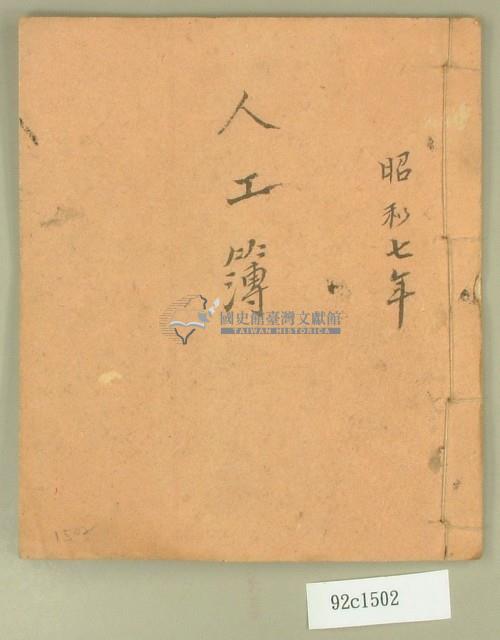 昭和七年
人工簿
國史館臺灣文獻館
TAIWAN HISTORICA
1502
92c1502